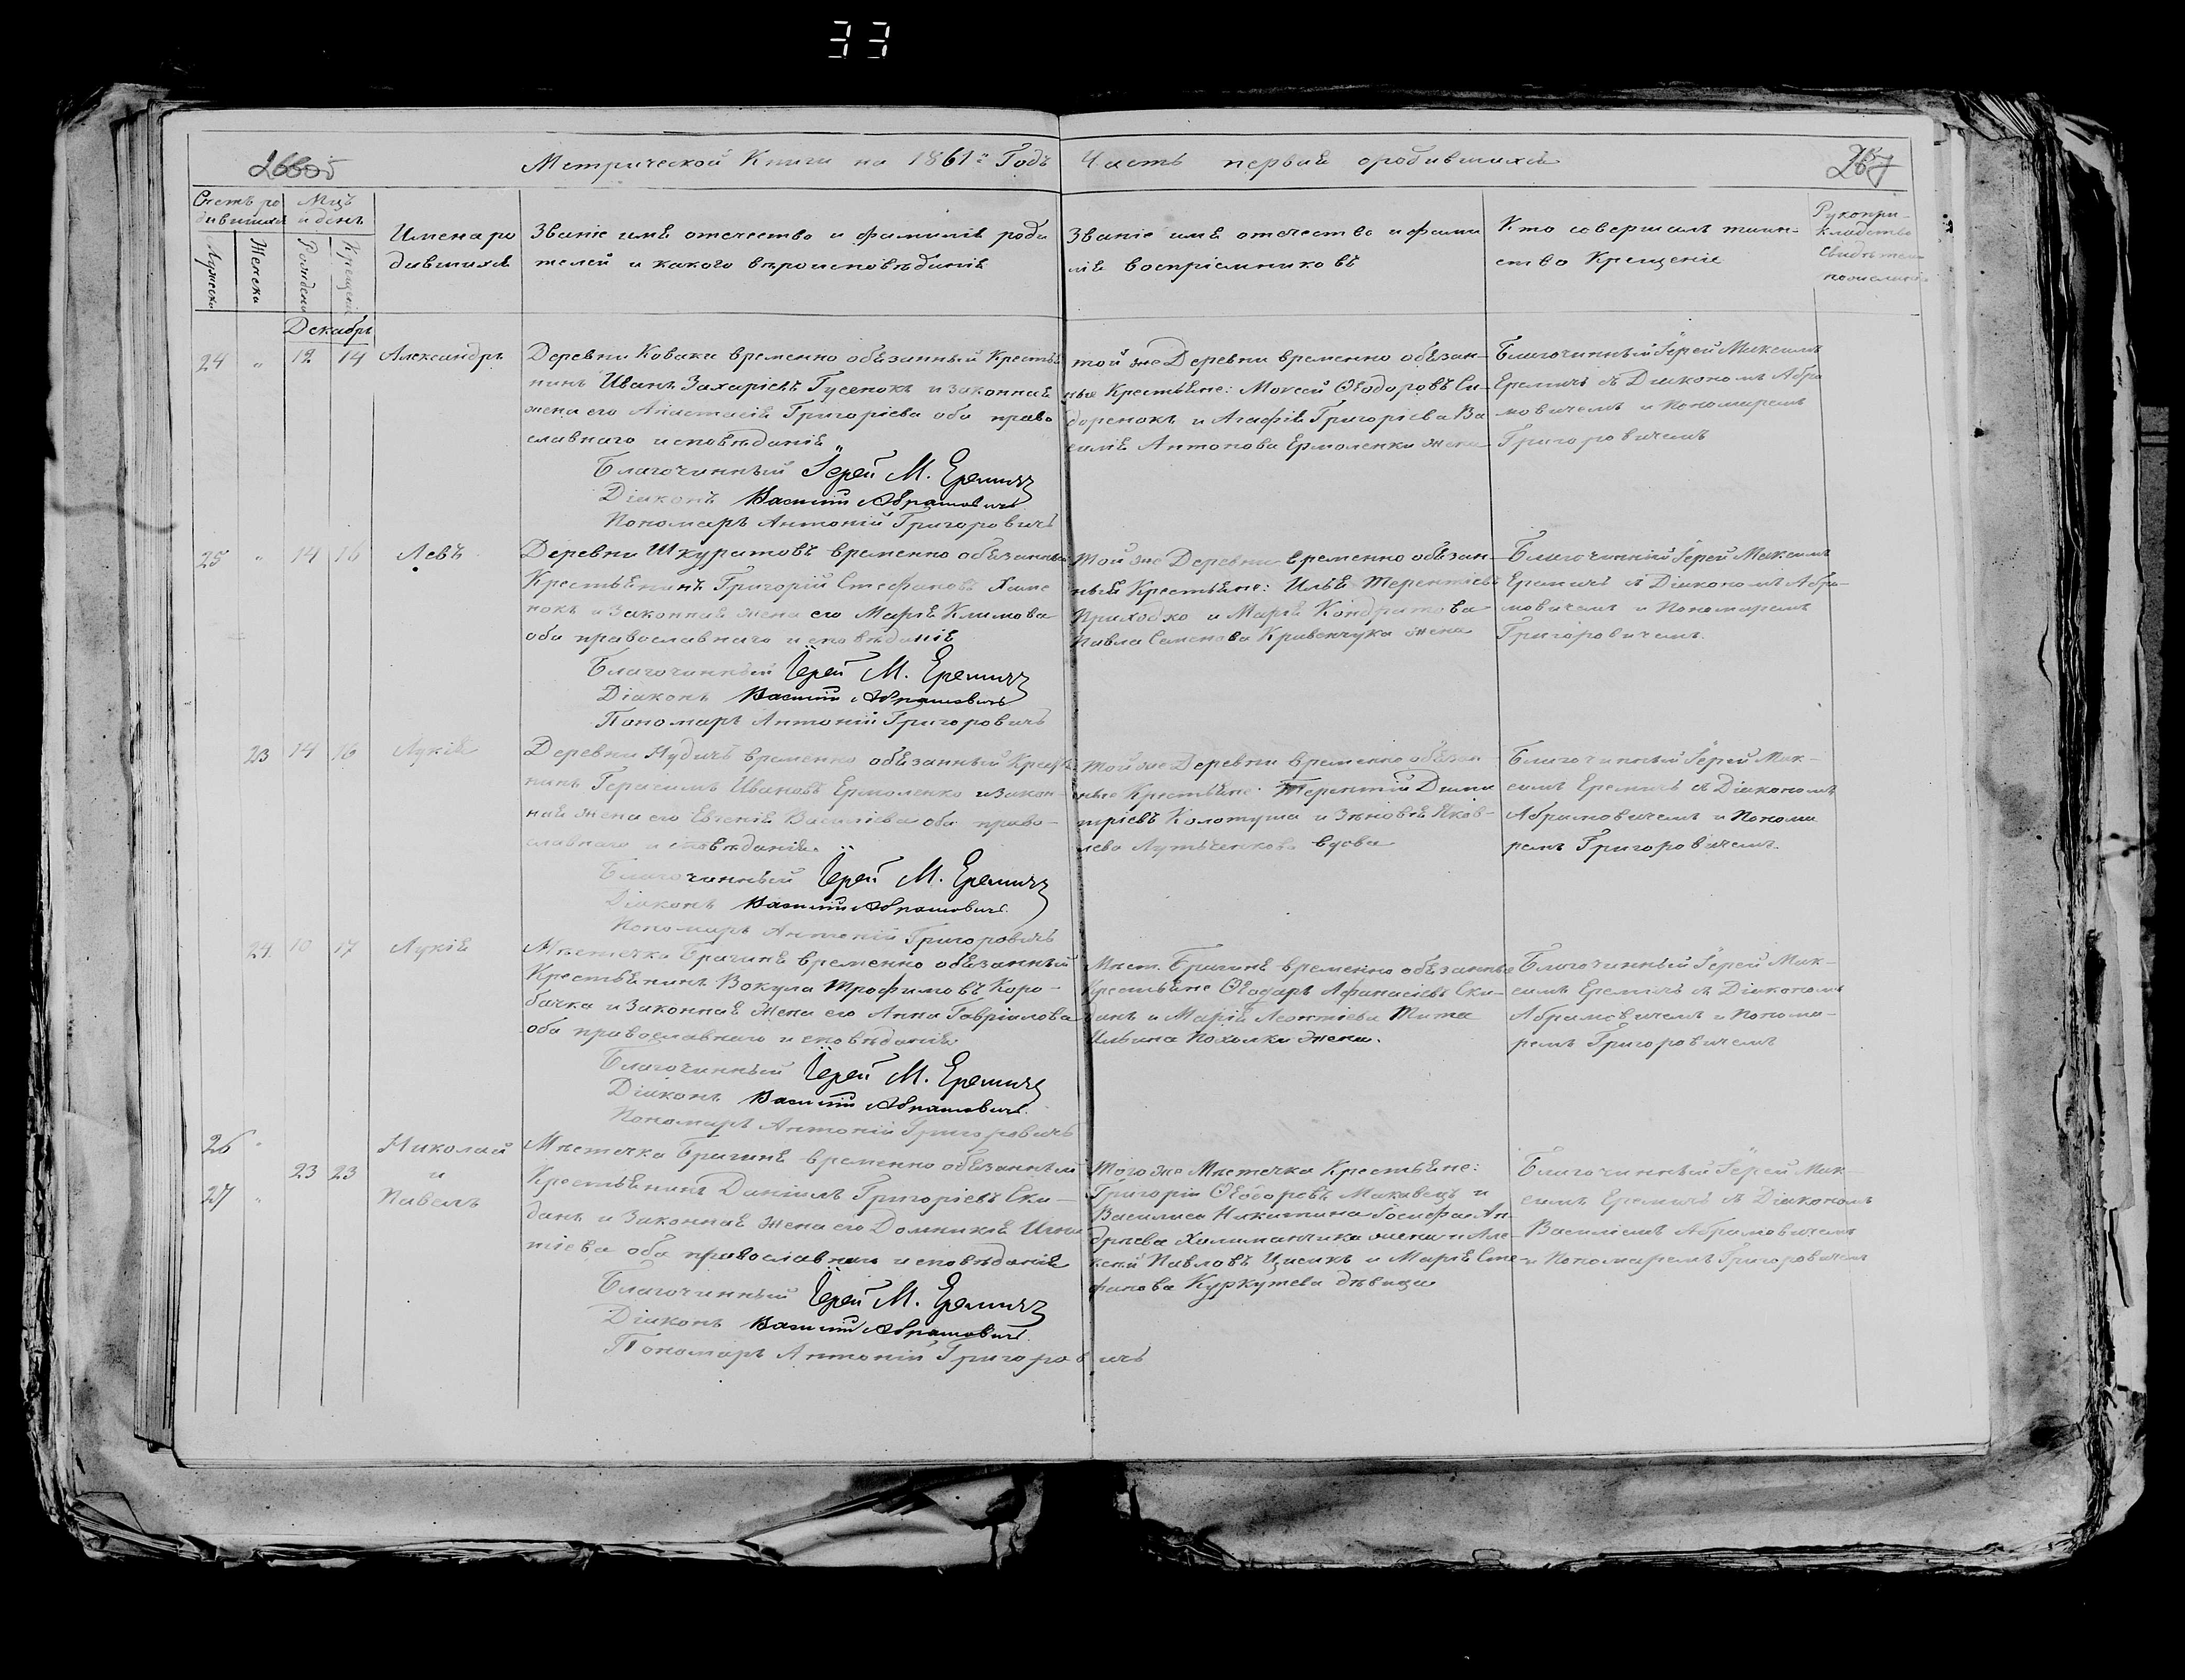 33
Метрической Книги на 1861й Годъ
Часть первая ородившихся
267
Счетъ ро
дившихся
Мцъ
и день
Мужеска
Женска
Рожденія
Крещенія
Имена ро
дившихся
Званіе имя отечество и фамилія роди
телей и какого вѣроисповѣданія
Званіе имя отечество и фами
лія воспріемниковъ
Кто совершалъ таин-
ство Крещенія
Рукопри-
кладство
свидѣтел
Декабрь
24 " 12 14 Александръ
Деревни Коваки временно обязанный Крестья
нинъ Иванъ Захаріевъ Гусенокъ и законная
жена его Анастасія Григоріева оба право
славнаго исповѣданія
Благочинный Іерей М. Еремичъ
Діаконъ Василій Абрамовичъ
Пономарь Антоній Григоровичъ
той же Деревни временно обязан-
ные Крестьяне: Моисей Ѳеодоровъ Си-
доренокъ и Агафія Григоріева Ва
силія Антонова Ермоленки жена
Благочинный Іерей Максимъ
Еремичъ съ Діакономъ Абра
мовичемъ и Пономаремъ
Григоровичемъ
25 " 14 16 Левъ
Деревни Шкуратовъ временно обязанный
Крестьянинъ Григорій Стефановъ
нокъ и Законная жена его Марія Климова
оба православнаго исповѣданія
Благочинный Іерей М. Еремичъ
Діаконъ Василій Абрамовичъ
Пономарь Антоній Григоровичъ
Той же Деревни временно обязан-
ный Крестьяне: Илья Терентіевъ
Приходко и Марія Кондратова
Павла Семенова Кривенчука жена
Благочинній Іерей Максимъ
Еремичъ съ Діакономъ Абра-
мовичемъ и Пономаремъ
Григоровичемъ.
23 14 16 Лукія
Деревни временно обязанный Крестья
нинъ Герасимъ Ивановъ Ермоленко и закон-
ная жена его Евгенія Василіева оба право-
славнаго исповѣданія.
Благочинный Іерей М. Еремичъ
Діаконъ Василій Абрамовичъ.
Пономарь Антоній Григоровичъ
Той же Деревни временно обязан
ные Крестьяне: Терентій Дими
тріевъ Колотуша и Зѣновія Яков-
лева вдова
Благочинный Іерей Мак-
симъ Еремичъ съ Діакономъ
Абрамовичемъ и Понома
ремъ Григоровичемъ.
24 10 17 Лукія
Мѣстечка Брагиня временно обязанный
Крестьянинъ Вокула Трофимовъ Коро-
бочка и Законная Жена его Анна Гавріилова
оба православнаго исповѣданія
Благочинный Іерей М. Еремичъ
Діаконъ Василій Абрамовичъ.
Пономарь Антоній Григоровичъ
Мѣст. Брагиня временно обязанные
Крестьяне Ѳеодоръ Афанасіевъ Ски-
данъ и Марія Леонтіева Тита
Ильина Похолки жена.
Благочинный Іерей Мак-
симъ Еремичъ съ Діакономъ
Абрамовичемъ и Понома-
ремъ Григоровичемъ
26 "
23 23
27 "
Николай
и
Павелъ
Мѣстечка Брагиня временно обязанный
Крестьянинъ Даніилъ Григоріевъ Ски-
данъ и Законная жена его Домникія Игна
тіева оба православнаго исповѣданія
Благочинный Іерей М. Еремичъ
Діаконъ Василій Абрамовичъ.
Пономарь Антоній Григоровичъ
Того же Мѣстечка Крестьяне:
Григорій Ѳеодоровъ Маковецъ и
Василиса Никитина Іосифа Ан-
дреева жена и Але-
ксѣй Павловъ и Марія Сте-
фанова дѣвица
Благочинный Іерей Мак-
симъ Еремичъ съ Діакономъ
Василіемъ Абрамовичемъ
и Пономаремъ Григоровичемъ